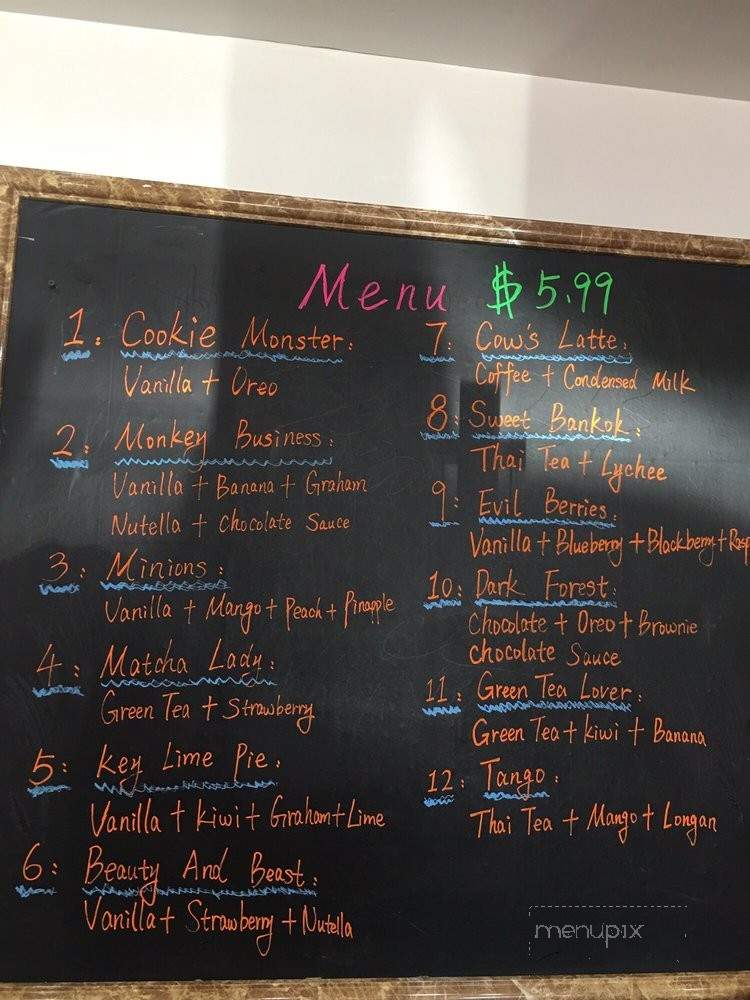 Menu $5.99
1: Cookie Monster:
Vanilla + Oreo
2: Monkey Business:
Vanilla + Banana + Graham
Nutella + Chocolate Sauce
3: Minions:
Vanilla + Mango + Peach + Pinapple
4: Matcha Lady:
Green Tea + Strawberry
5: Key Lime Pie:
Vanilla + Kiwi + Graham + Lime
6: Beauty And Beast:
Vanilla + Strawberry + Nutella
7: Cow's Latte:
Coffee + Condensed Milk
8: Sweet Bankok:
Thai Tea + Lychee
9: Evil Berries:
Vanilla + Blueberry + Blackberry + Rasp
10: Dark Forest:
Chocolate + Oreo + Brownie
Chocolate Sauce
11: Green Tea Lover:
Green Tea + Kiwi + Banana
12: Tango:
Thai Tea + Mango + Longan
menupix